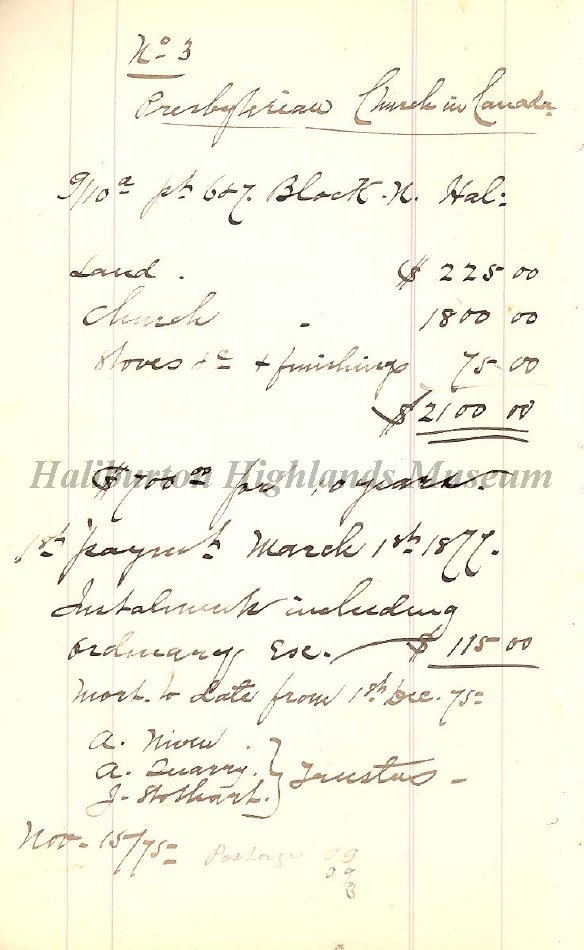 No 3
Presbyterian Church in Canada
9/10 a pt 6 & 7. Block. N. Hal:
Land. $ 225 00
Church - 1800 00
Stoves &c + finishings 75 00
$ 2100 00
Haliburton Highlands Museum
$700 00 for 10 years.
1st paymt March 1st 1877.
Instalments including
ordinary Exc. $ 115 00
Mort. to date from 1st Dec. 75=
A. Niven.
A. Quarry. } Trustees -
J. Stothart.
Nov- 15/75= Postage 09
09